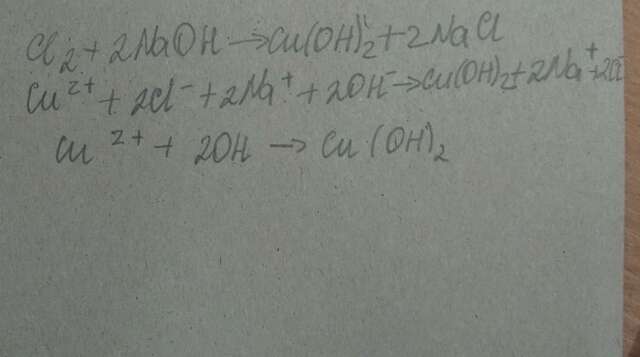 Cl₂ + 2NaOH → Cu(OH)₂ + 2NaCl
Cu²⁺ + 2Cl⁻ + 2Na⁺ + 2OH⁻ → Cu(OH)₂ + 2Na⁺ + 2Cl⁻
Cu²⁺ + 2OH → Cu(OH)₂